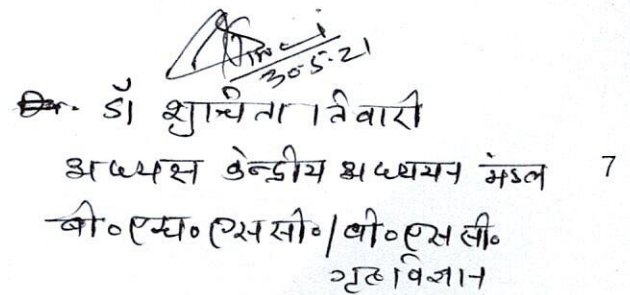 30-5-21
डॉ शुचिता तिवारी
अध्यक्ष केन्द्रीय अध्ययन मंडल
7
बी०एच०एससी०/बी०एससी०
गृहविज्ञान